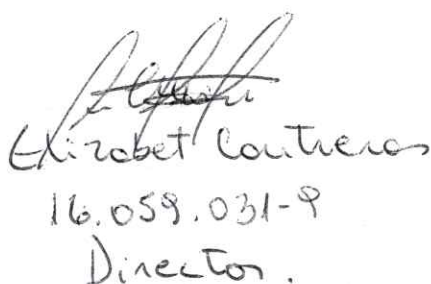 Elizabet Contreras
16.059.031-9
Director.